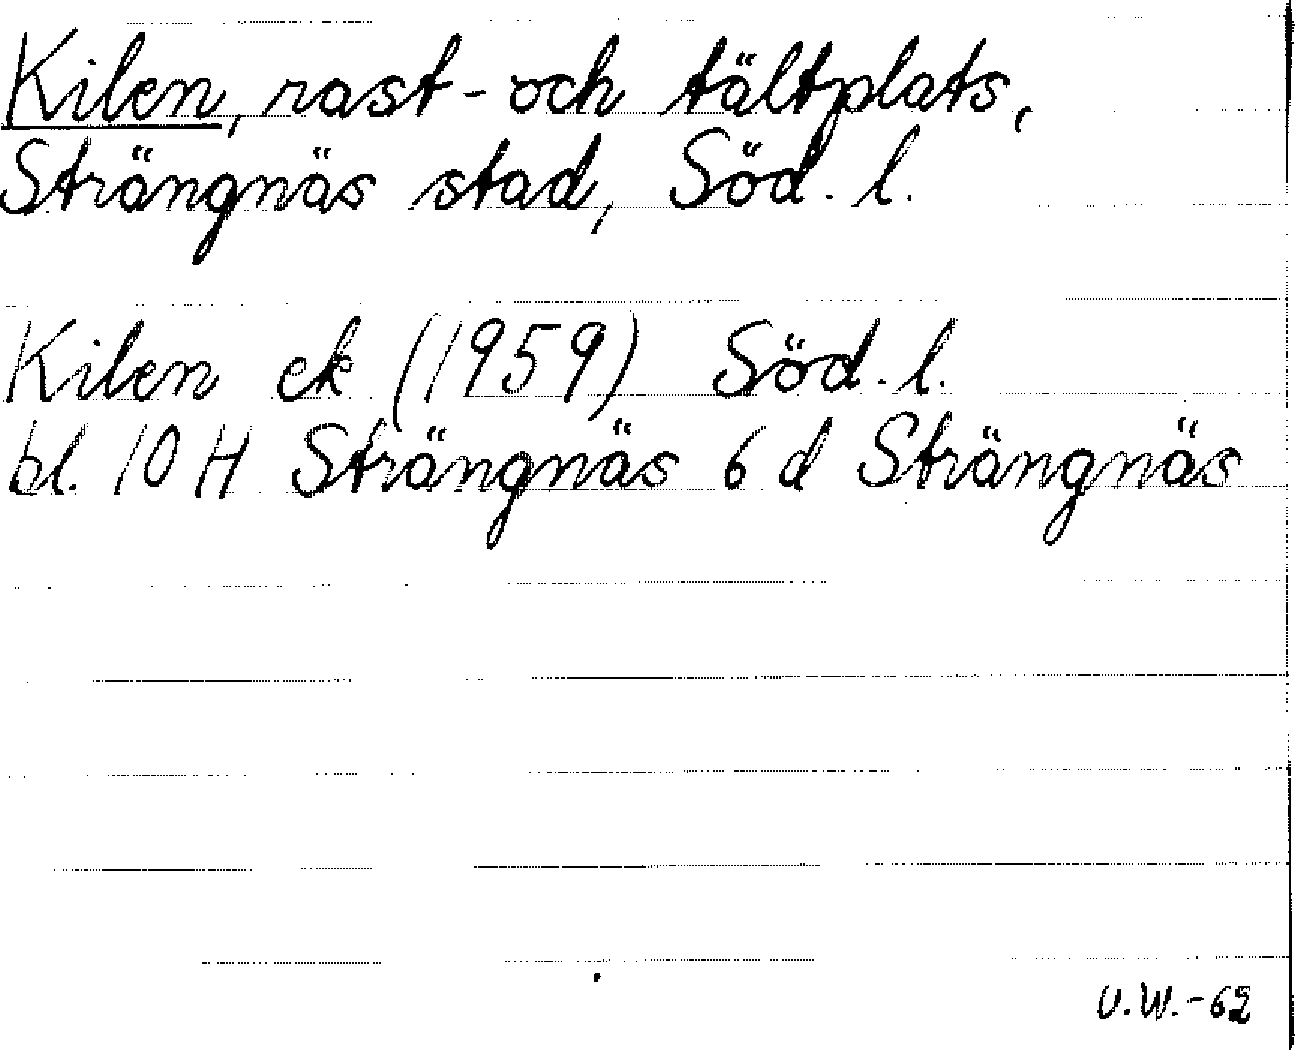 Kilen, rast- och tältplats,
Strängnäs stad, Söd. l.
Kilen ek (1959) Söd. l.
bl. 10 H Strängnäs 6 d Strängnäs
U.W.-62